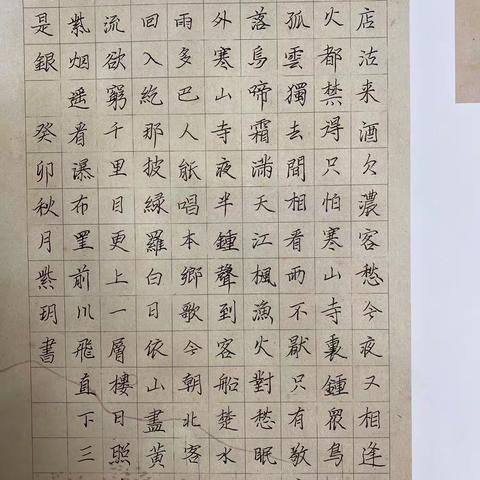 店沽来酒欠濃客愁今夜又相逢
火都禁得只怕寒山寺裏鍾眾鳥
孤雲獨去間相看两不厭只有敬
落烏啼霜滿天江楓漁火對愁眠
外寒山寺夜半鍾聲到客船楚水
雨多巴人能唱本鄉歌今朝北客
回入紇那披綠羅白日依山盡黃
流欲窮千里目更上一層樓日照
紫烟遥看瀑布罣前川飛直下三
是銀 癸卯秋月紫玥書